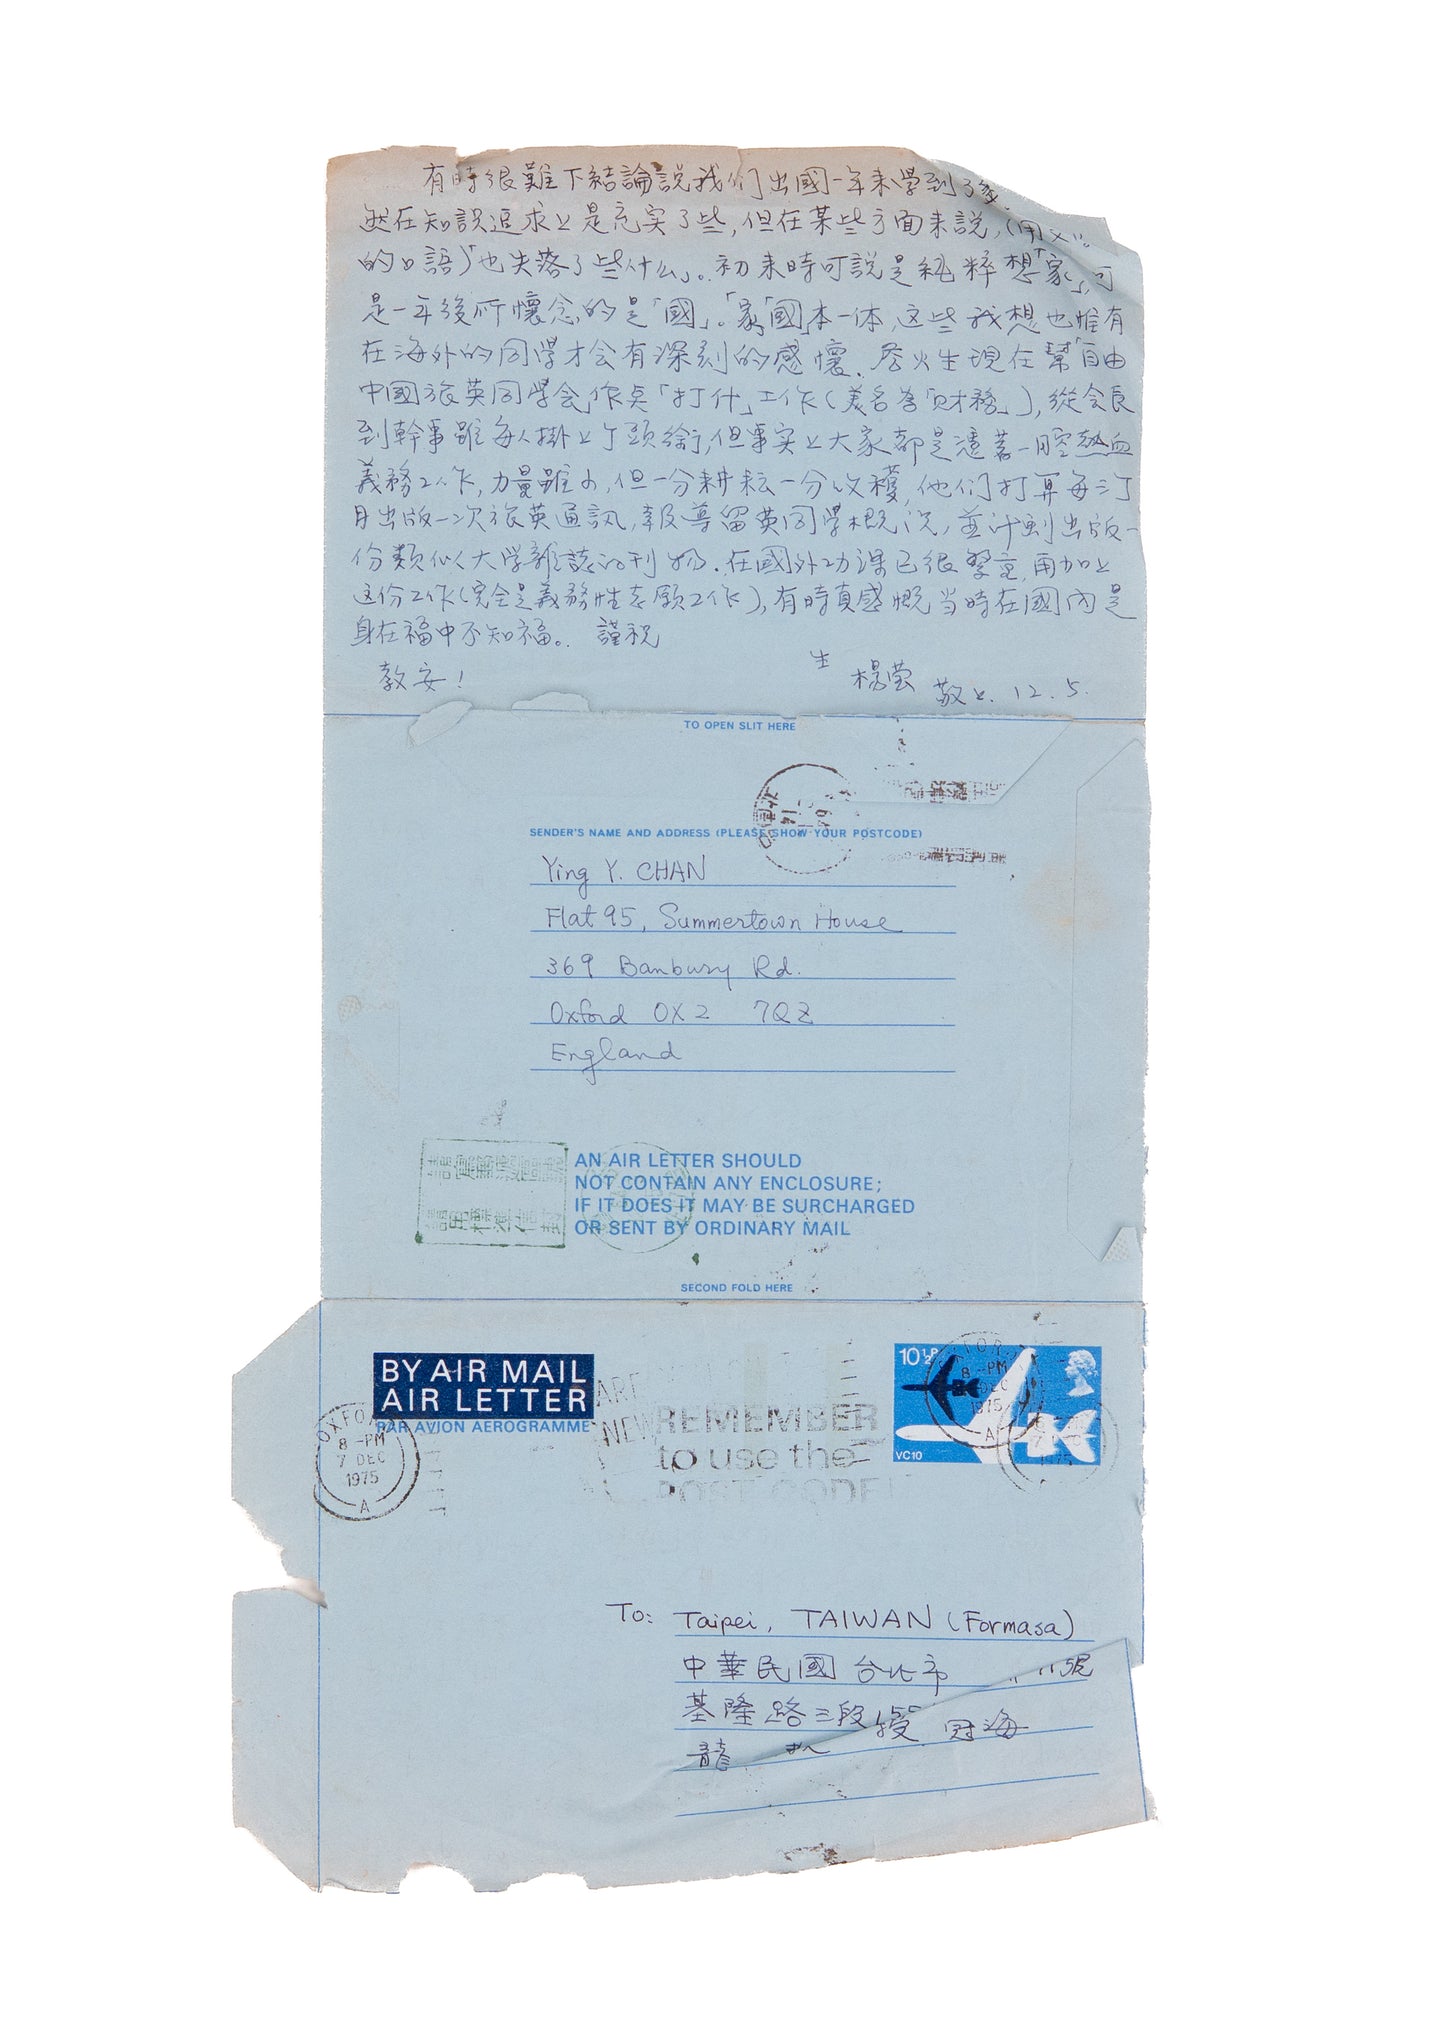 有時很難下結論說我们出國一年来學到了多
然在知識追求上是充实了些,但在某些方面来說,(用
的口語)「也失落了些什么」。初来時可說是純粹想「家」,可
是一年後所懷念的是「國」。「家」「國」本一体,这些我想也惟有
在海外的同学才会有深刻的感懷.岺火生現在幫「自由
中國旅英同學会」作点「打什」工作(美名為「財務」),從会長
到幹事雖每人掛上丁頭銜,但事实上大家都是憑着一腔熱血
義務工作,力量雖小,但一分耕耘一分收穫,他们打算每三丁
月出版一次旅英通訊,報導留英同学概况,並计劃出版一
份類似大学雜誌的刊物.在國外功课已很繁重,再加上
这份工作(完全是義務性志願工作),有時真感慨当時在國内是
身在福中不知福。 謹祝
教安!
生 楊瑩 敬上. 12. 5.
TO OPEN SLIT HERE
SENDER'S NAME AND ADDRESS (PLEASE SHOW YOUR POSTCODE)
Ying Y. CHAN
Flat 95, Summertown House
369 Banbury Rd.
Oxford OX2 7QZ
England
請寫郵遞區號
請用標準信封
AN AIR LETTER SHOULD
NOT CONTAIN ANY ENCLOSURE;
IF IT DOES IT MAY BE SURCHARGED
OR SENT BY ORDINARY MAIL
SECOND FOLD HERE
BY AIR MAIL
AIR LETTER
PAR AVION AEROGRAMME
OXFORD
8 -PM
7 DEC
1975
A
REMEMBER
to use the
POST CODE
10½P
VC10
8 -PM
DEC
1975
A
To: Taipei, TAIWAN (Formasa)
中華民國台北市 號
基隆路三段 授 冠海
龍